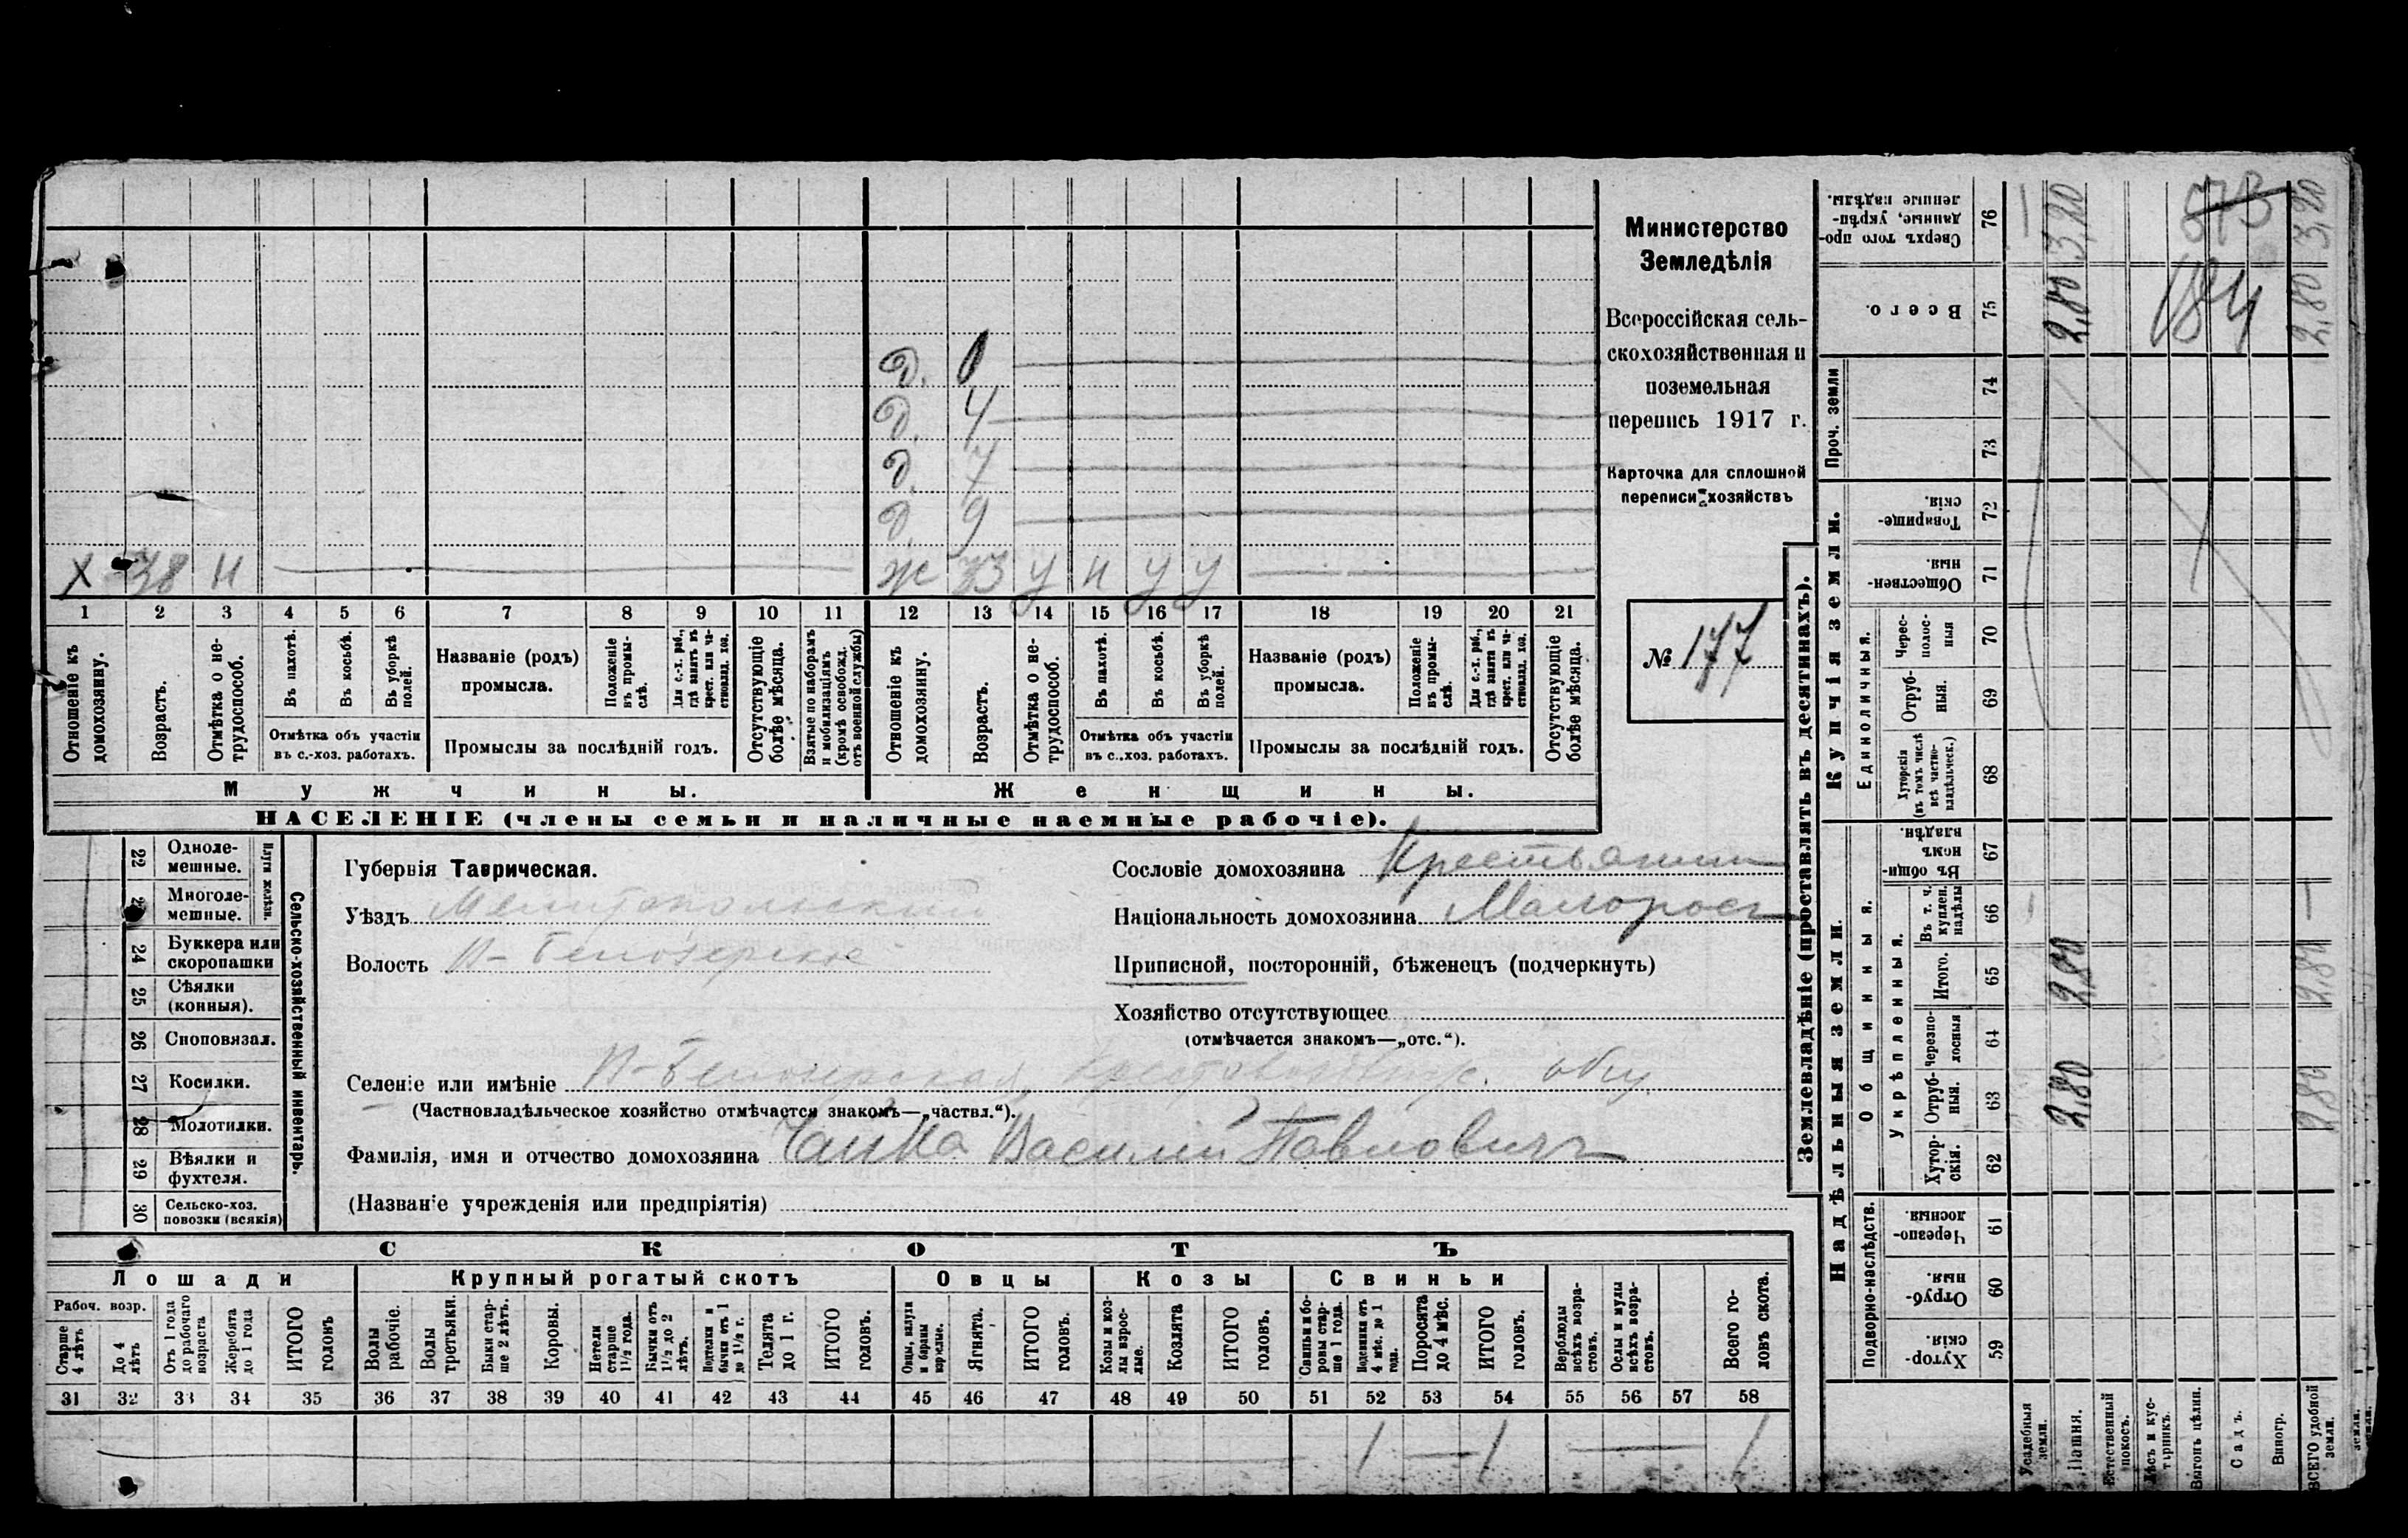 Министерство
Земледѣлія
Всероссійская сель-
скохозяйственная и
поземельная
перепись 1917 г.
Карточка для сплошной
переписи хозяйствъ
№ 177
Д. 1
Д. 4
Д. 7
Д. 9
Х 38 н
ж 33 у н у у
1 2 3 4 5 6 7 8 9 10 11 12 13 14 15 16 17 18 19 20 21
Отношеніе къ домохозяину.
Возрастъ.
Отмѣтка о не-трудоспособ.
Въ пахотѣ.
Въ косьбѣ.
Въ уборкѣ полей.
Отмѣтка объ участіи
въ с.-хоз. работахъ.
Названіе (родъ)
промысла.
Положеніе въ промы-слѣ.
Для с.-х. раб., гдѣ занятъ въ крест. или ча-стновлад. хоз.
Промыслы за послѣдній годъ.
Отсутствующіе болѣе мѣсяца.
Взятые по наборамъ и мобилизаціямъ (кромѣ освобожд. отъ военной службы)
Отношеніе къ домохозяину.
Возрастъ.
Отмѣтка о не-трудоспособ.
Въ пахотѣ.
Въ косьбѣ.
Въ уборкѣ полей.
Отмѣтка объ участіи
въ с..хоз. работахъ.
Названіе (родъ)
промысла.
Положеніе въ промы-слѣ.
Для с.-х. раб., гдѣ занята въ крест. или ча-стновлад. хоз.
Промыслы за послѣдній годъ.
Отсутствующіе болѣе мѣсяца.
Мужчины.
Женщины.
НАСЕЛЕНІЕ (члены семьи и наличные наемные рабочіе).
Сельско-хозяйственный инвентарь.
Плуги желѣзн.
22 Одноле-мешные.
23 Многоле-мешные.
24 Буккера или скоропашки
25 Сѣялки (конныя).
26 Сноповязал.
27 Косилки.
28 Молотилки.
29 Вѣялки и фухтеля.
30 Сельско-хоз. повозки (всякія)
Губернія Таврическая.
Уѣздъ Мелитопольский
Волость
Сословіе домохозяина Крестьянин
Національность домохозяина Малорос
Приписной, посторонній, бѣженецъ (подчеркнуть)
Хозяйство отсутствующее
(отмѣчается знакомъ—„отс.“).
Селеніе или имѣніе
(Частновладѣльческое хозяйство отмѣчается знакомъ—„частвл.“).
Фамилія, имя и отчество домохозяина Чайка Василий Павлович
(Названіе учрежденія или предпріятія)
СКОТЪ
Лошади
Крупный рогатый скотъ
Овцы
Козы
Свиньи
Рабоч. возр.
Старше 4 лѣтъ
До 4 лѣтъ
Отъ 1 года до рабочаго возраста
Жеребята до 1 года
ИТОГО головъ
Волы рабочіе.
Волы третьяки.
Быки стар-ше 2 лѣтъ.
Коровы.
Нетели старше 1½ года.
Бычки отъ 1½ до 2 лѣтъ.
Подтелки и бычки отъ 1 до 1½ г.
Телята до 1 г.
ИТОГО головъ.
Овцы, валухи и бараны взрослые.
Ягнята.
ИТОГО головъ.
Козы и коз-лы взрос-лые.
Козлята
ИТОГО головъ.
Свиньи и бо-ровы стар-ше 1 года.
Подсвинки отъ 4 мѣс. до 1 года.
Поросята до 4 мѣс.
ИТОГО головъ.
Верблюды всѣхъ возра-стовъ.
Ослы и мулы всѣхъ возра-стовъ.
Всего го-ловъ скота.
31 32 33 34 35 36 37 38 39 40 41 42 43 44 45 46 47 48 49 50 51 52 53 54 55 56 57 58
1 — 1 — 1
Землевладѣніе (проставлять въ десятинахъ).
Надѣльныя земли.
Купчія земли.
Проч. земли
Подворно-наслѣдств.
Общинныя.
Укрѣпленныя.
Единоличныя.
Сверхъ того про-данные, укрѣп-ленные надѣлы. 76
Всего. 75
74
73
Товарище-скія. 72
Обществен-ныя. 71
Черес-полос-ныя 70
Отруб-ныя. 69
Хуторскія (въ томъ числѣ всѣ частно-владѣльческ.) 68
Въ общин-номъ владѣн. 67
Въ т. ч. куплен. надѣлы 66
Итого. 65
Черезпо-лосныя 64
Отруб-ныя. 63
Хутор-скія. 62
Черезпо-лосныя. 61
Отруб-ныя. 60
Хутор-скія. 59
Усадебныя земли.
Пашня.
Естественный покосъ.
Лѣсъ и кус-тарникъ.
Выгонъ цѣлин.
Садъ.
Виногр.
ВСЕГО удобной земли.
2,80 2,80 2,80 3,20
2,80 2,80 2,80 3,20
573
184